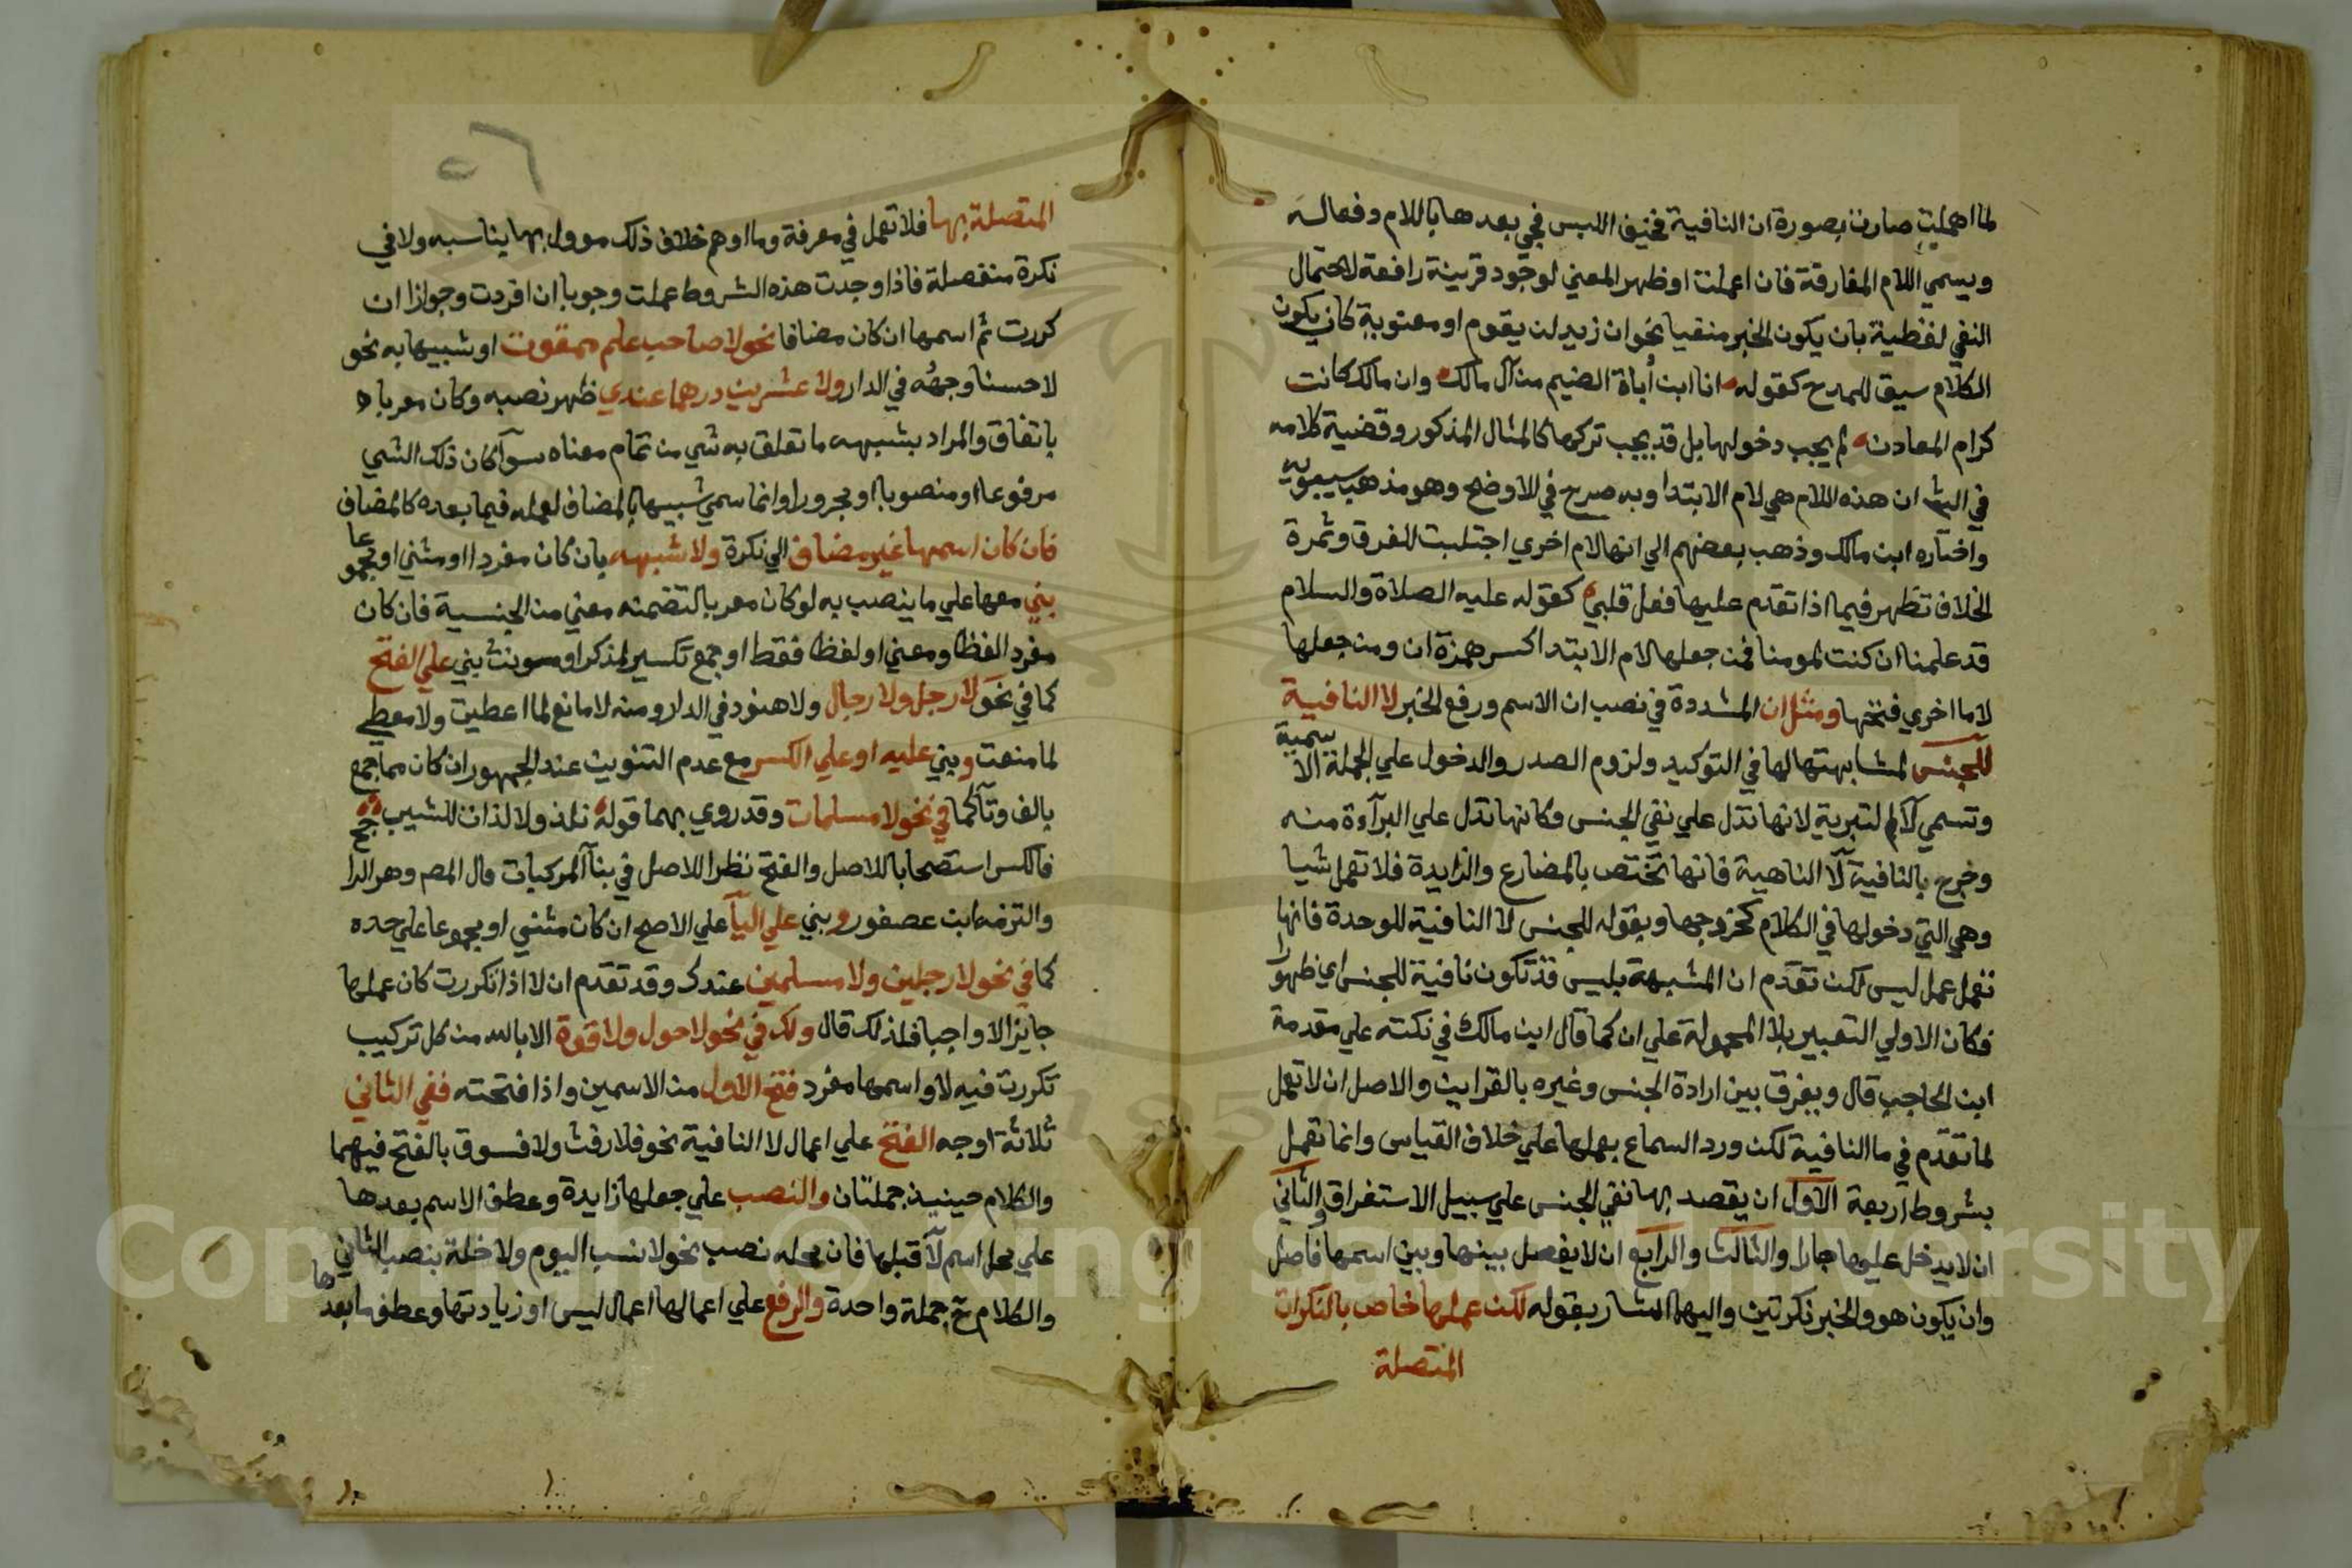 لما اهملت صارت بصورة ان النافية فخيف اللبس فجي بعدها باللام دفعا له
ويسمي اللام الفارقة فان اعملت او ظهر المعني لوجود قرينة رافعة لاحتمال
النفي لفظية بان يكون الخبر منفيا نحو ان زيد لن يقوم او معنوية كان يكون
الكلام سيق للمدح كقوله انا ابن أباة الضيم من آل مالك وان مالك كانت
كرام المعادن لم يجب دخولها بل قد يجب تركها كالمثال المذكور وقضية كلامه
في الش ان هذه اللام هي لام الابتدا وبه صرح في الاوضح وهو مذهب سيبويه
واختاره ابن مالك وذهب بعضهم الي انها لام اخري اجتلبت للفرق وثمرة
الخلاف تظهر فيما اذا تقدم عليها فعل قلبي كقوله عليه الصلاة والسلام
قد علمنا ان كنت لمومنا فمن جعلها لام الابتدا كسر همزة ان ومن جعلها
لاما اخري فتحها ومثل ان المشددة في نصب ان الاسم ورفع الخبر لا النافية
للجنس لمشابهتها لها في التوكيد ولزوم الصدر والدخول علي الجملة الاسمية
وتسمي لا التبرية لانها تدل علي نفي الجنس وكانها تدل علي البرآءة منه
وخرج بالنافية لا الناهية فانها تختص بالمضارع والزايدة فلا تعمل شيا
وهي التي دخولها في الكلام كخروجها وبقوله للجنس لا النافية للوحدة فانها
تعمل عمل ليس لكن تقدم ان المشبهة بليس قد تكون نافية للجنس اي ظهورا
فكان الاولي التعبير بلا المحمولة علي ان كما قال ابن مالك في نكته علي مقدمة
ابن الحاجب قال ويفرق بين ارادة الجنس وغيره بالقراين والاصل ان لا تعمل
لما تقدم في ما النافية لكن ورد السماع بعملها علي خلاف القياس وانما تعمل
بشروط اربعة الاول ان يقصد بها نفي الجنس علي سبيل الاستغراق والثاني
ان لا يدخل عليها جار والثالث والرابع ان لا يفصل بينها وبين اسمها فاصل
وان يكون هو والخبر نكرتين واليهما اشار بقوله لكن عملها خاص بالنكرات
المتصلة
المتصلة بها فلا تعمل في معرفة وما اوهم خلاف ذلك موول بما يناسبه ولا في
نكرة منفصلة فاذا وجدت هذه الشروط عملت وجوبا ان افردت وجوازا ان
كررت ثم اسمها ان كان مضافا نحو لا صاحب علم ممقوت او شبيها به نحو
لا حسنا وجهه في الدار ولا عشرين درهما عندي ظهر نصبه وكان معربا
باتفاق والمراد بشبهه ما تعلق به شي من تمام معناه سوآ كان ذلك الشي
مرفوعا او منصوبا او مجرورا وانما سمي شبيها بالمضاف لعمله فيما بعده كالمضاف
فان كان اسمها غير مضاف الي نكرة ولا شبهه بان كان مفردا او مثني او مجموعا
بني معها علي ما ينصب به لو كان معربا لتضمنه معني من الجنسية فان كان
مفردا لفظا ومعني او لفظا فقط او جمع تكسير لمذكر او مونث بني علي الفتح
كما في نحو لا رجل ولا رجال ولا هنود في الدار ومنه لا مانع لما اعطيت ولا معطي
لما منعت وبني عليه او علي الكسر مع عدم التنوين عند الجمهور ان كان مما جمع
بالف وتآ كما في نحو لا مسلمات وقد روي بهما قوله نلذ ولا لذات للشيب
فالكسر استصحابا للاصل والفتح نظرا للاصل في بنآ المركبات قال المص وهو الرا
والتزمه ابن عصفور وبني علي اليآ علي الاصح ان كان مثني او مجموعا علي حده
كما في نحو لا رجلين ولا مسلمين عندك وقد تقدم ان لا اذا تكررت كان عملها
جايزا لا واجبا فلذلك قال ولك في نحو لا حول ولا قوة الا بالله من كل تركيب
تكررت فيه لا واسمها مفرد فتح الاول من الاسمين واذا فتحته ففي الثاني
ثلاثة اوجه الفتح علي اعمال لا النافية نحو فلا رفث ولا فسوق بالفتح فيهما
والكلام حينيذ جملتان والنصب علي جعلها زايدة وعطف الاسم بعدها
علي محل اسم لا قبلها فان محله نصب نحو لا نسب اليوم ولا خلة بنصب الثاني
والكلام ح جملة واحدة والرفع علي اعمالها اعمال ليس او زيادتها وعطف ما بعدها